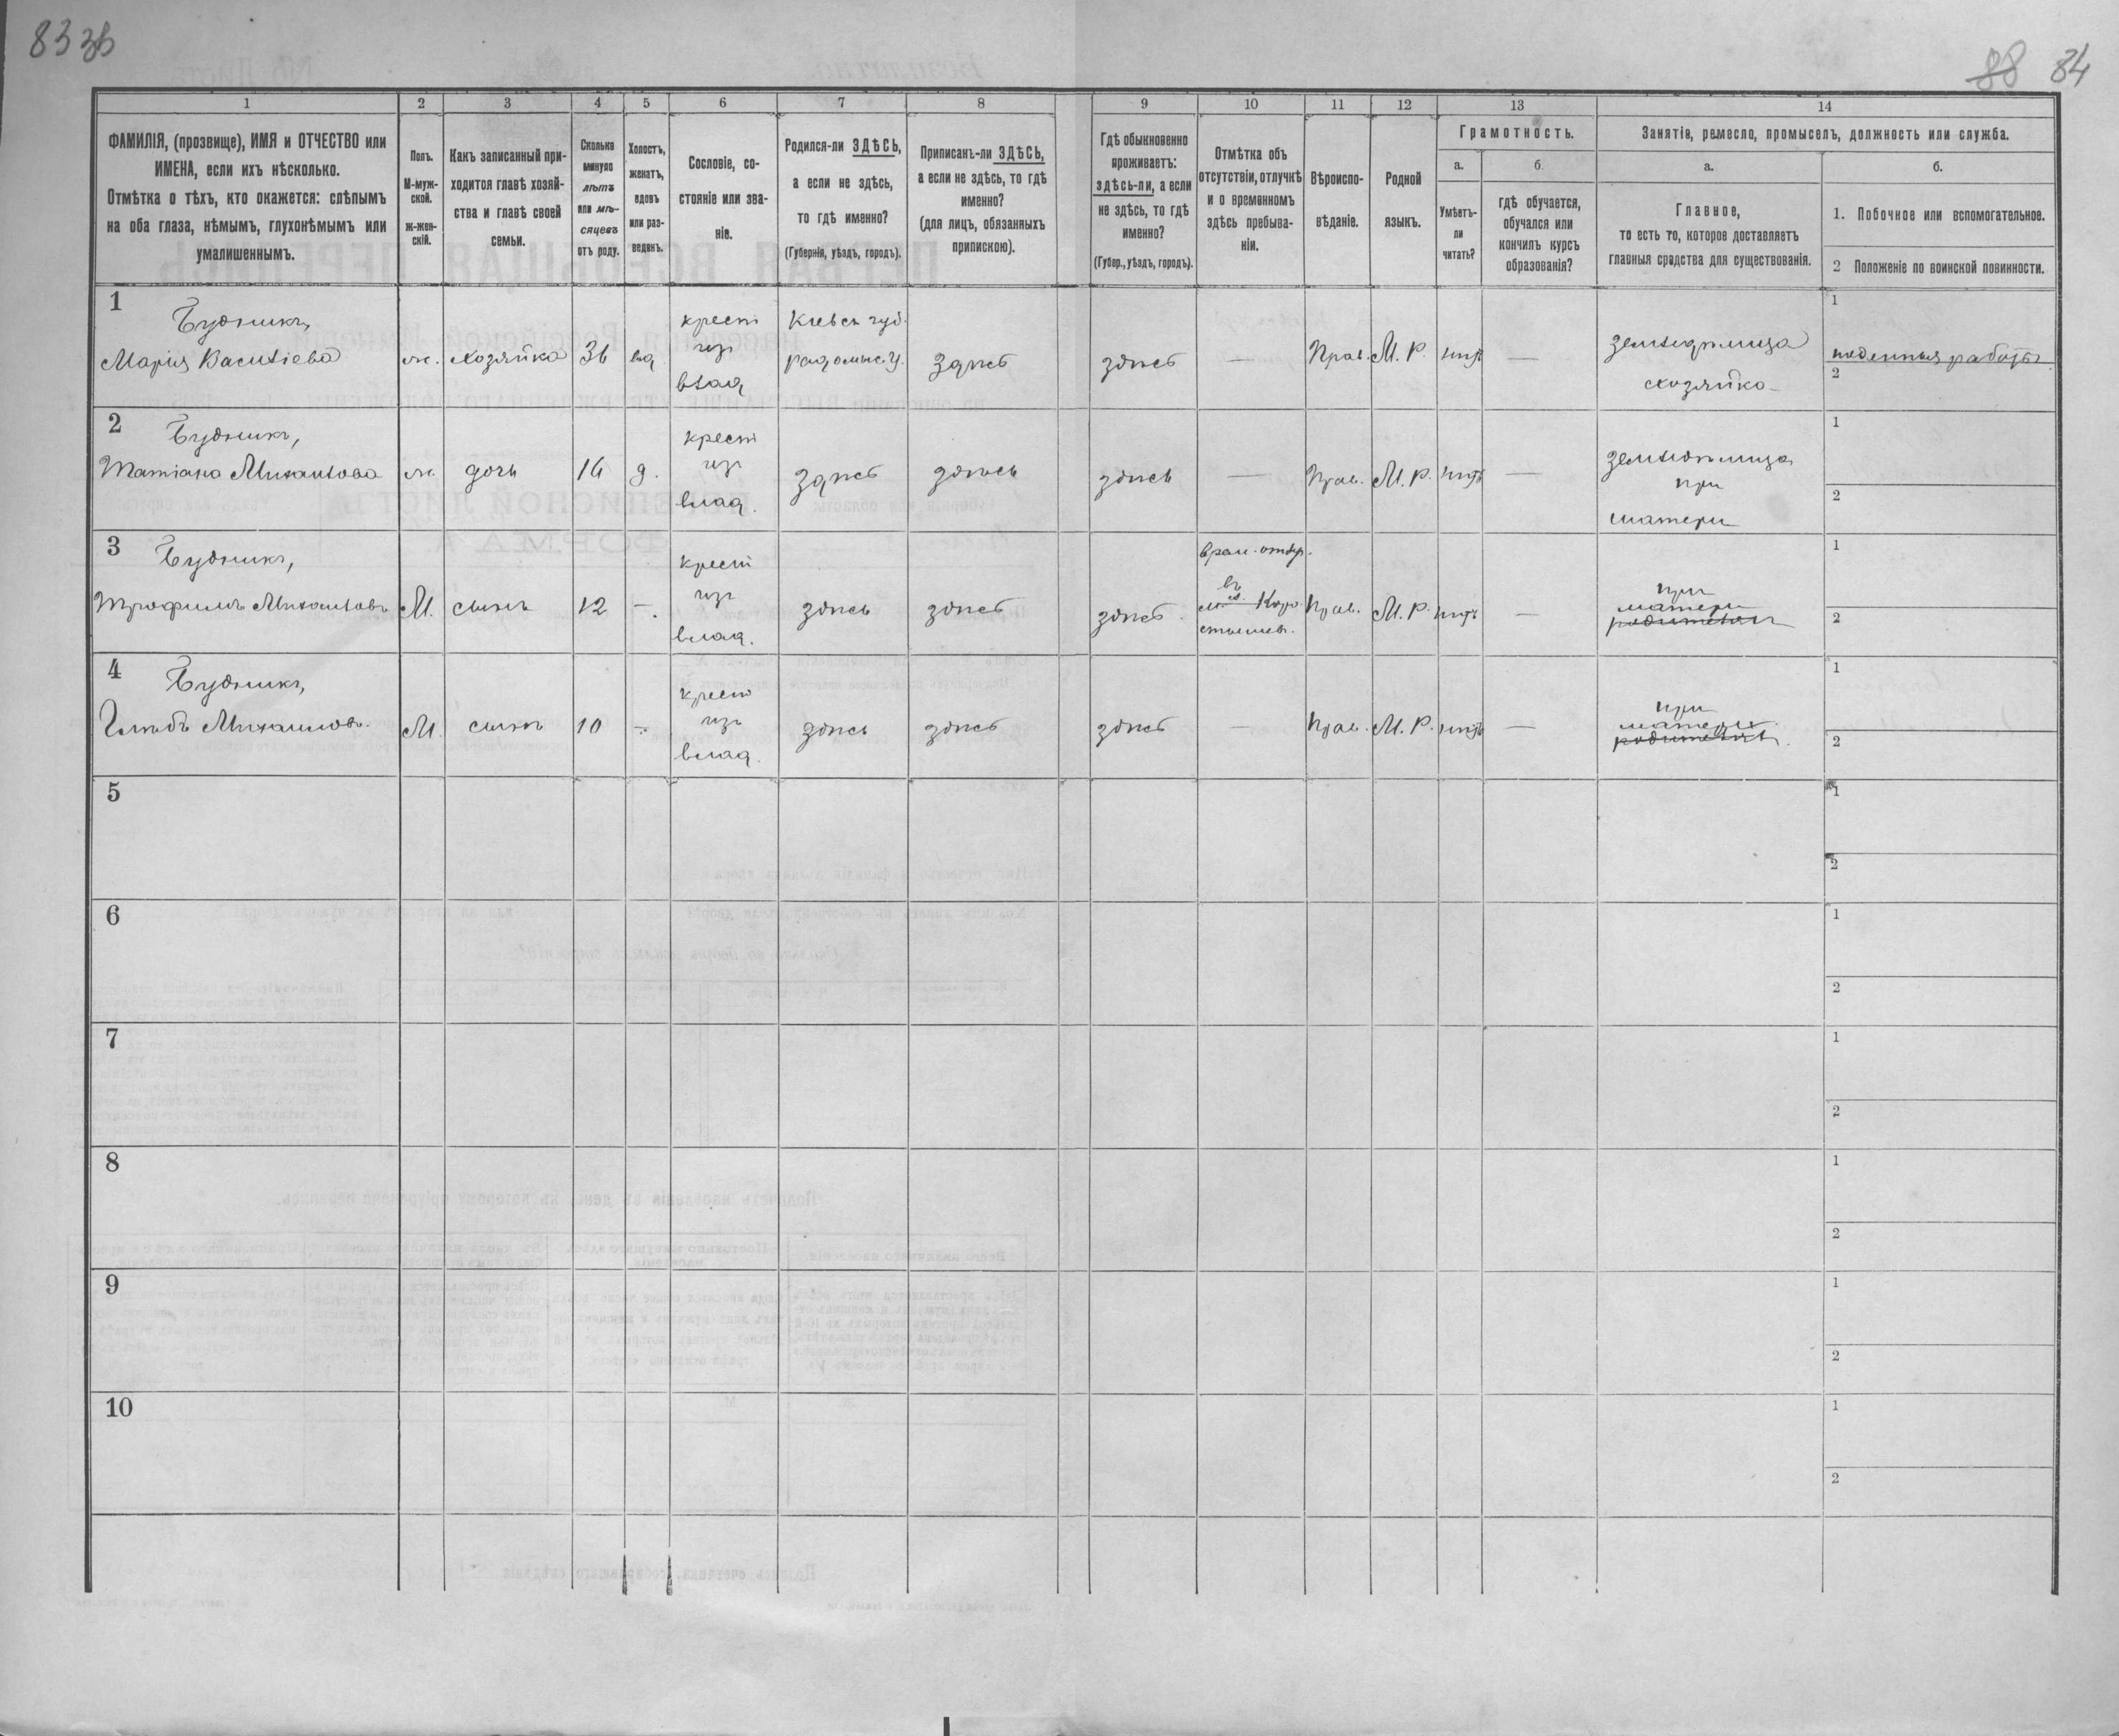 83 зв
88 84
1 2 3 4 5 6 7 8 9 10 11 12 13 14
ФАМИЛІЯ, (прозвище), ИМЯ и ОТЧЕСТВО или
ИМЕНА, если ихъ нѣсколько.
Отмѣтка о тѣхъ, кто окажется: слѣпымъ
на оба глаза, нѣмымъ, глухонѣмымъ или
умалишеннымъ.
Полъ.
М-муж-
ской.
ж-жен-
скій.
Какъ записанный при-
ходится главѣ хозяй-
ства и главѣ своей
семьи.
Сколько
минуло
лѣтъ
или мѣ-
сяцевъ
отъ роду.
Холостъ,
женатъ,
вдовъ
или раз-
веденъ.
Сословіе, со-
стояніе или зва-
ніе.
Родился-ли ЗДѢСЬ,
а если не здѣсь,
то гдѣ именно?
(Губернія, уѣздъ, городъ).
Приписанъ-ли ЗДѢСЬ,
а если не здѣсь, то гдѣ
именно?
(для лицъ, обязанныхъ
припискою).
Гдѣ обыкновенно
проживаетъ:
здѣсь-ли, а если
не здѣсь, то гдѣ
именно?
(Губер., уѣздъ, городъ).
Отмѣтка объ
отсутствіи, отлучкѣ
и о временномъ
здѣсь пребыва-
ніи.
Вѣроиспо-
вѣданіе.
Родной
языкъ.
Грамотность.
а.
Умѣетъ-
ли
читать?
б.
гдѣ обучается,
обучался или
кончилъ курсъ
образованія?
Занятіе, ремесло, промыселъ, должность или служба.
а.
Главное,
то есть то, которое доставляетъ
главныя средства для существованія.
б.
1. Побочное или вспомогательное.
2 Положеніе по воинской повинности.
1
Будникъ,
Марія Васильева
ж.
хозяйка
36
вд
крест
изъ
влад
Кіевск губ.
радомыс. у.
здѣсь
здѣсь
—
Прав.
М. Р.
нѣтъ
—
земледѣлица
хозяйка
1
поденныя работы
2
2
Будникъ,
Татіана Михаилова
ж.
дочь
16
д.
крест
изъ
влад.
здѣсь
здѣсь
здѣсь
—
Прав.
М. Р.
нѣтъ
—
земледѣлица
при
матери
1
2
3
Будникъ,
Трофимъ Михаиловъ
М.
сынъ
12
—.
крест
изъ
влад.
здѣсь
здѣсь
здѣсь
въ
Прав.
М. Р.
нѣтъ
—
при
матери
родителяхъ
1
2
4
Будникъ,
Глѣбъ Михаиловъ.
М.
сынъ
10
—.
крест
изъ
влад.
здѣсь
здѣсь
здѣсь
—
Прав.
М. Р.
нѣтъ
—
при
матери
родителяхъ
1
2
5
1
2
6
1
2
7
1
2
8
1
2
9
1
2
10
1
2